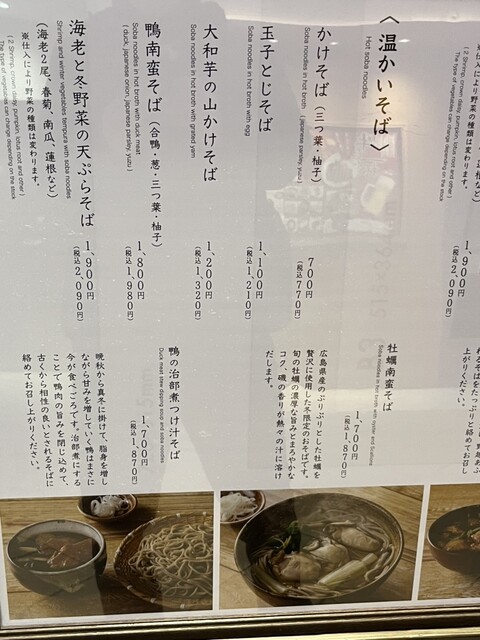 〈温かいそば〉
Hot soba noodles
かけそば（三つ葉・柚子）
700円
（税込770円）
Soba noodles in hot broth （Japanese parsley, yuzu）
玉子とじそば
1,100円
（税込1,210円）
Soba noodles in hot broth with egg
大和芋の山かけそば
1,200円
（税込1,320円）
Soba noodles in hot broth with grated yam
鴨南蛮そば（合鴨・葱・三つ葉・柚子）
1,800円
（税込1,980円）
Soba noodles in hot broth with duck meat
（duck, japanese onion, japanese parsley, yuzu）
海老と冬野菜の天ぷらそば
1,900円
（税込2,090円）
Shrimp and winter vegetables tempura with soba noodles
（海老2尾、春菊、南瓜、蓮根など）
※仕入により野菜の種類は変わります。
（2 Shrimp, crown daisy, pumpkin, lotus root and other）
The type of vegetables can change depending on the stock
1,900円
（税込2,090円）
（2 Shrimp, crown daisy, pumpkin, lotus root and other）
The type of vegetables can change depending on the stock
牡蠣南蛮そば
Soba noodles in hot broth with oyster and
1,700円
（税込1,870円）
広島県産のぷりぷりとした牡蠣を
贅沢に使用した冬限定のおそばです。
旬の牡蠣の濃厚な旨みとまろやかな
コク、磯の香りが熱々の汁に溶け
だします。
鴨の治部煮つけ汁そば
Duck meat stew dipping soup and soba noodles
1,700円
（税込1,870円）
晩秋から真冬に掛けて、脂身を増し
ながら甘みを増していく鴨はまさに
今が食べごろです。治部煮にする
ことで鴨肉の旨みを閉じ込めて、
古くから相性の良いとされるそばに
絡めてお召し上がりください。